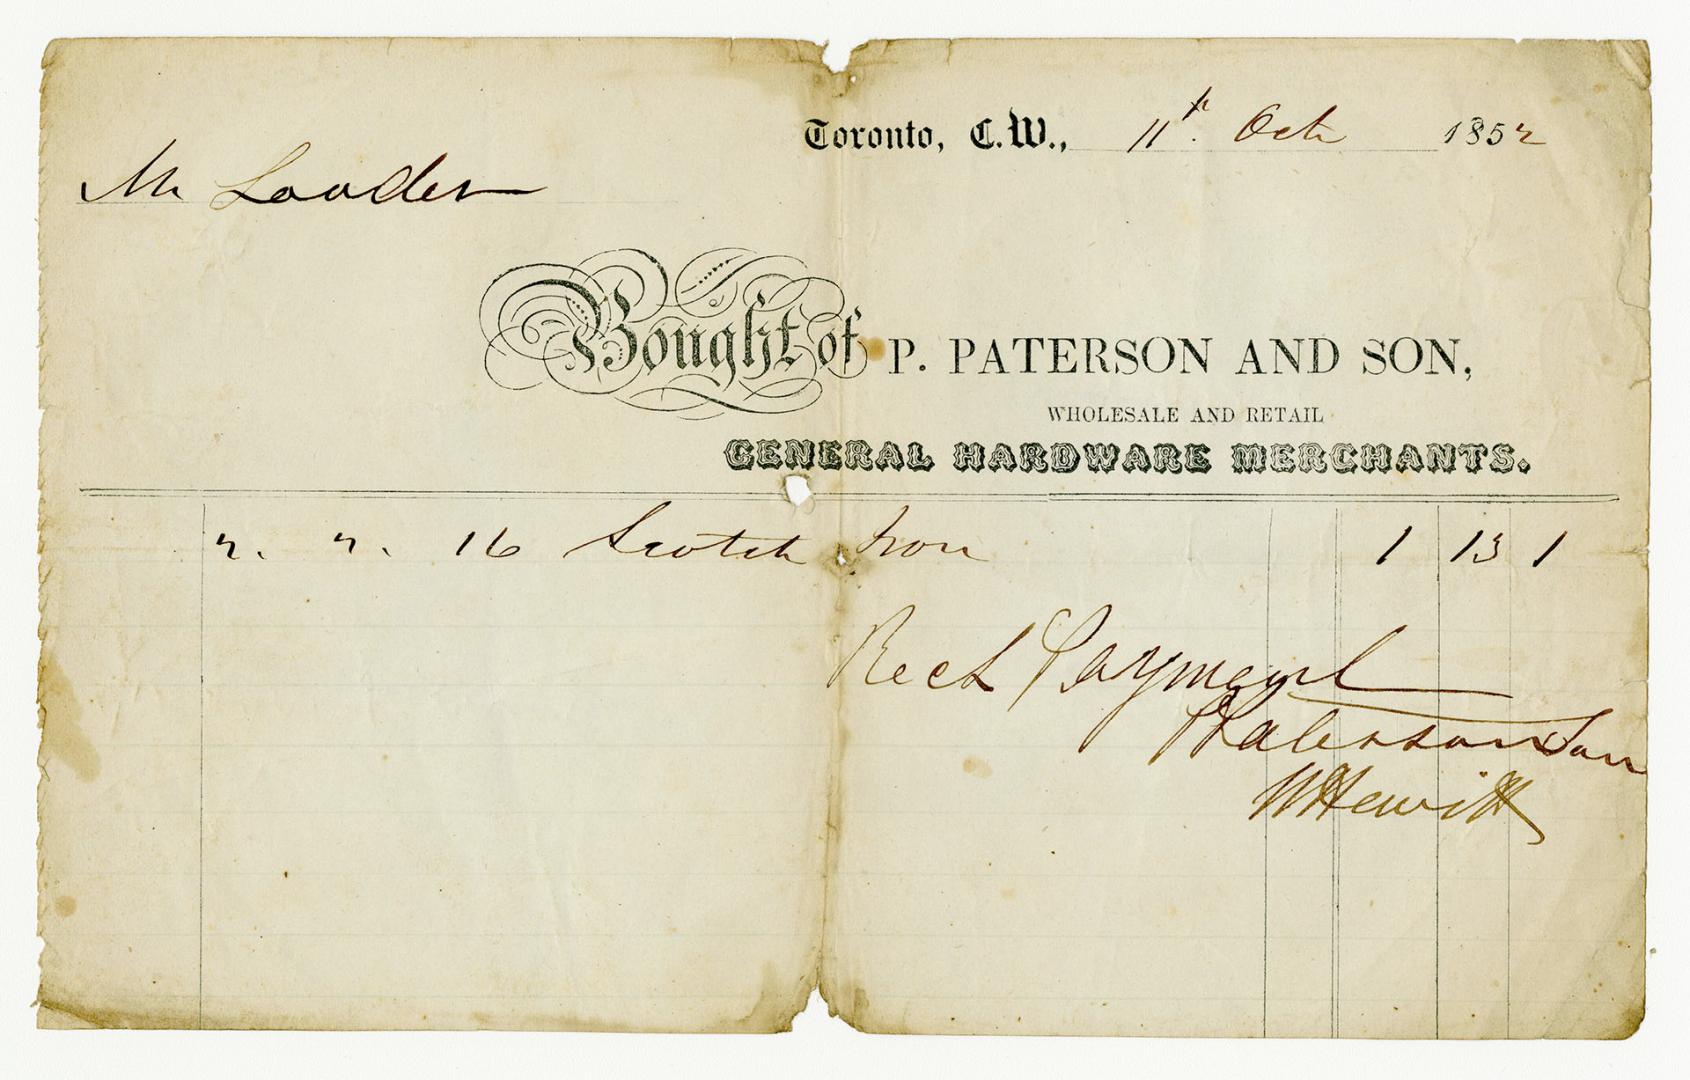 Toronto, C.W., 11th. Oct 1852
Mr Lauder
Bought of P. PATERSON AND SON,
WHOLESALE AND RETAIL
GENERAL HARDWARE MERCHANTS.
2. 2. 16 Scotch Iron 1 13 1
Recd Payment
P Paterson Son
W Hewitt